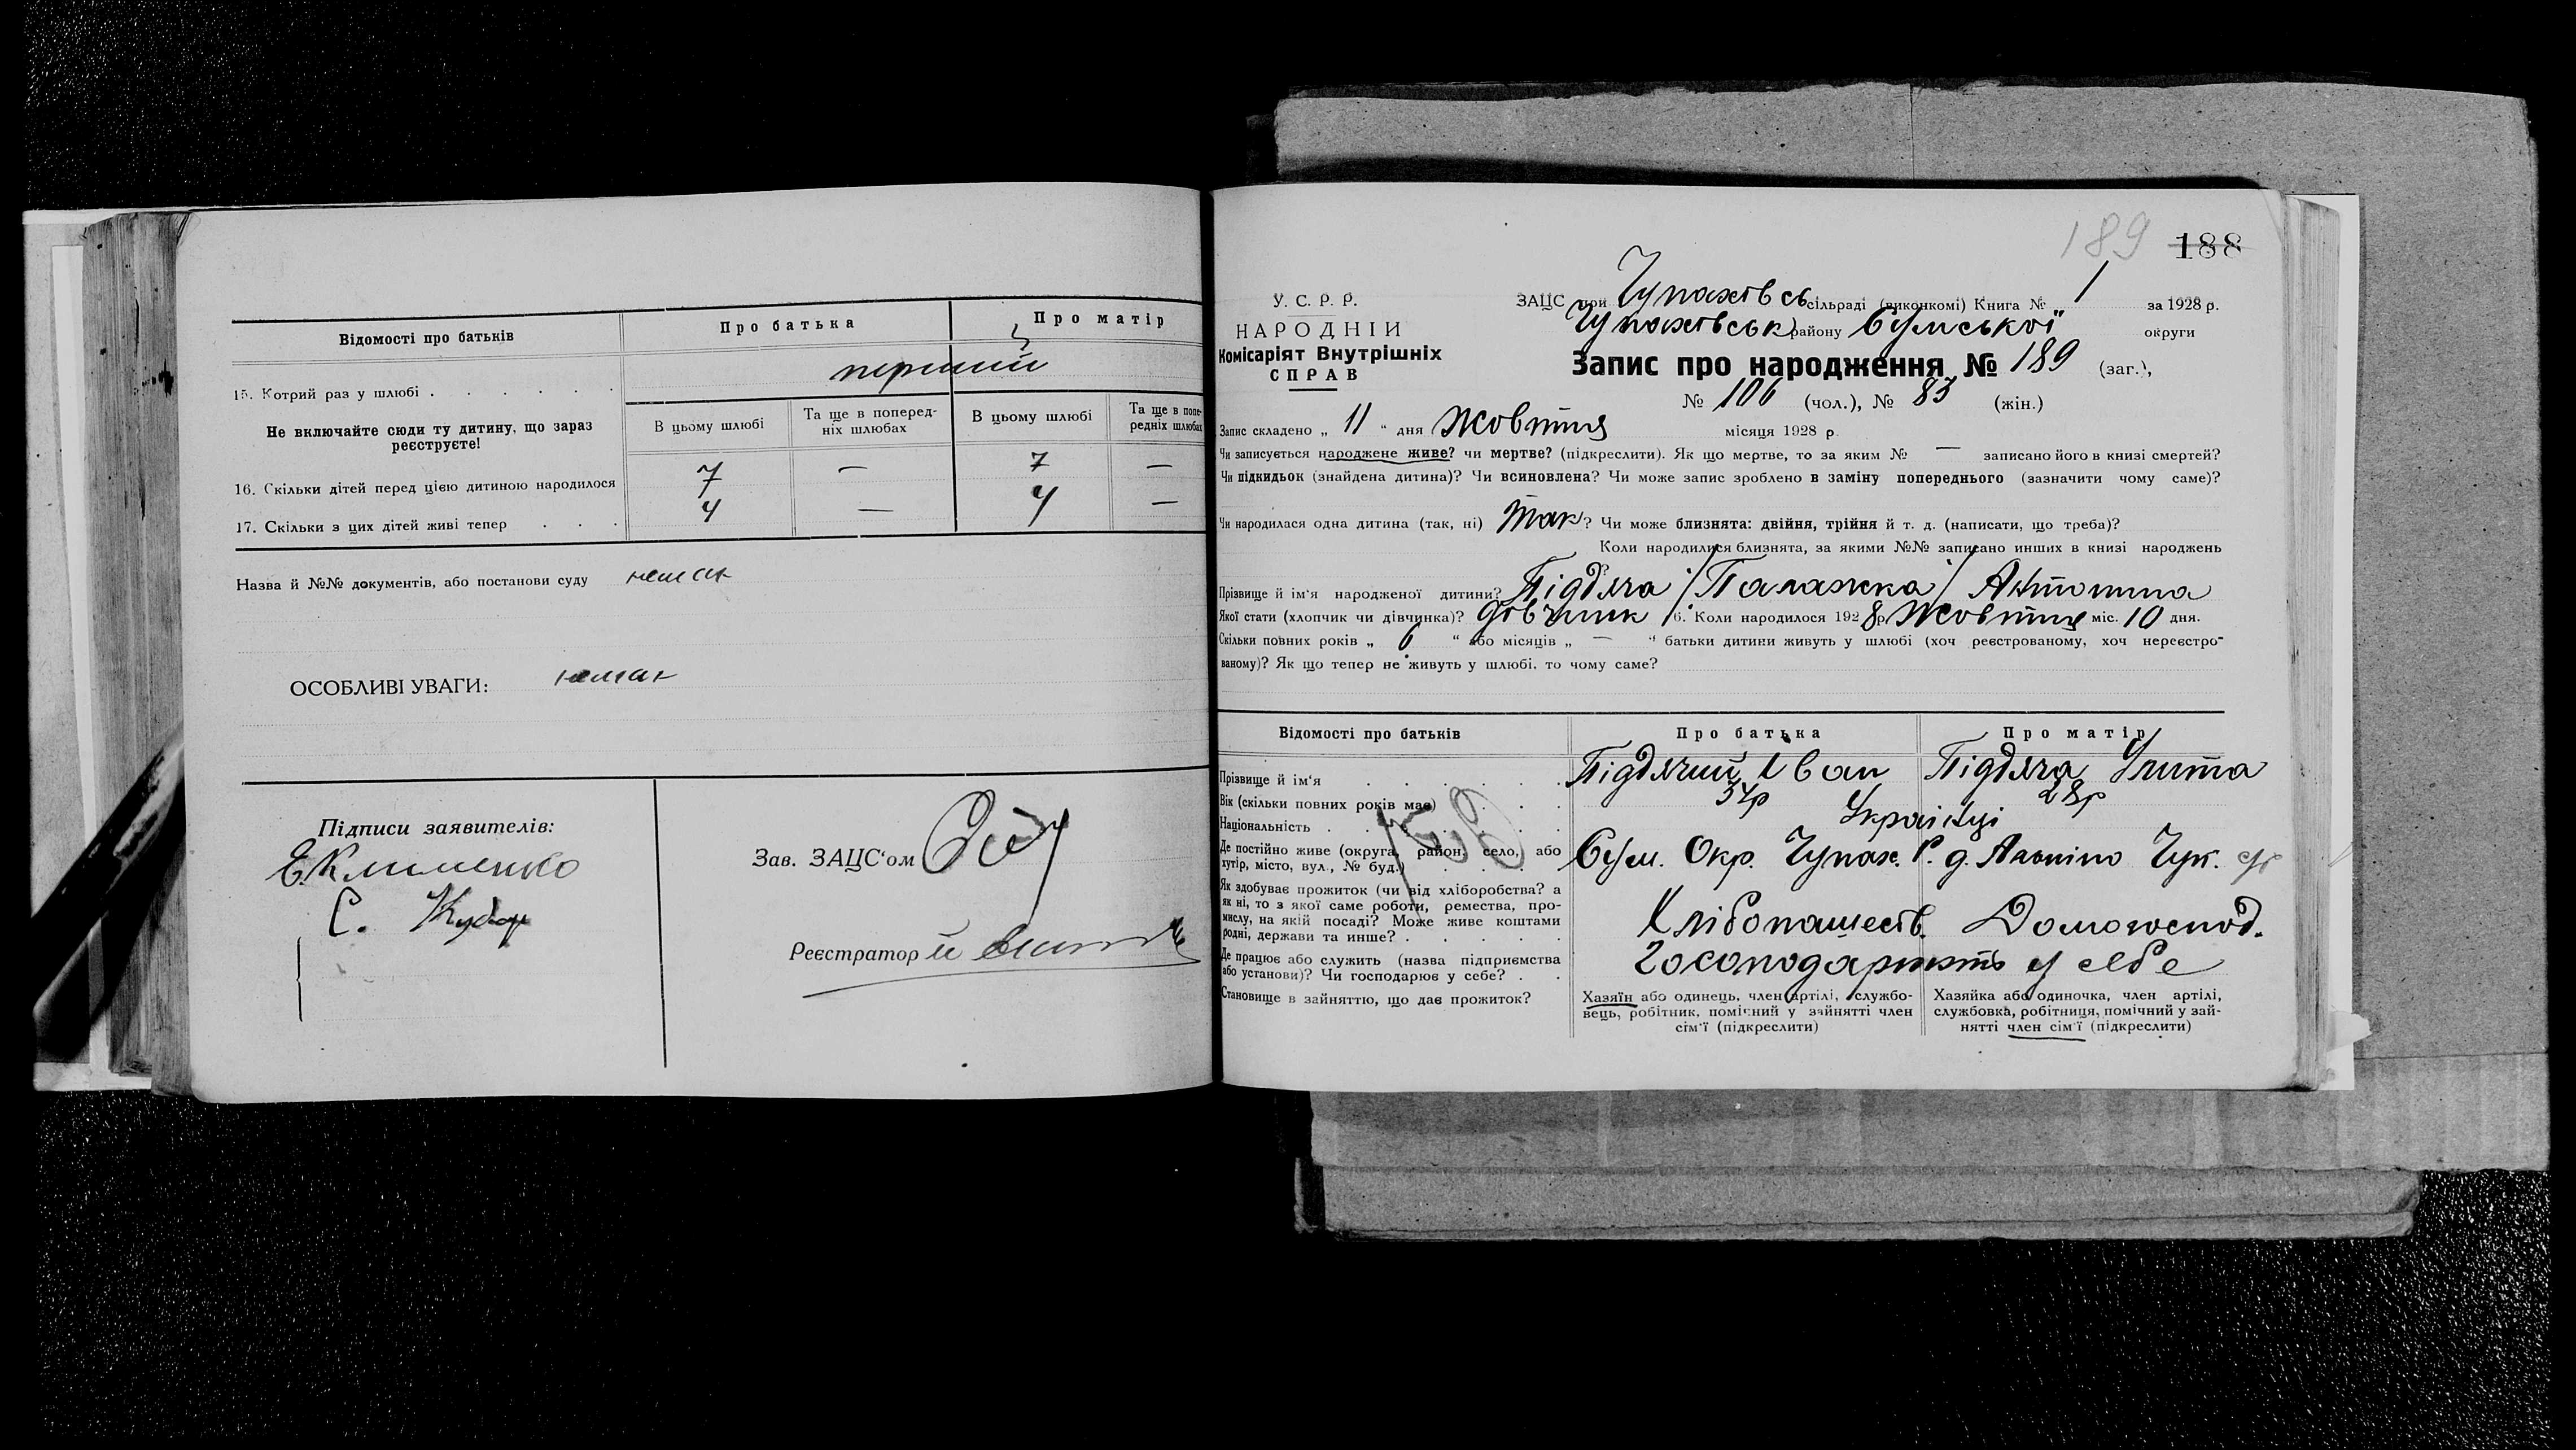 Відомості про батьків
Про батька
Про матір
15. Котрий раз у шлюбі
перший
Не включайте сюди ту дитину, що зараз реєструєте!
В цьому шлюбі
Та ще в поперед-
ніх шлюбах
В цьому шлюбі
Та ще в попе-
редніх шлюбах
16. Скільки дітей перед цією дитиною народилося
7 — 7 —
17. Скільки з цих дітей живі тепер
4 — 4 —
Назва й №№ документів, або постанови суду немає
ОСОБЛИВІ УВАГИ: немає
Підписи заявителів:
Е.Клименко
С.
Зав. ЗАЦС'ом
Реєстратор
189 188
У. С. Р. Р.
НАРОДНІЙ
Комісаріят Внутрішніх
СПРАВ
ЗАЦС при Чупахівсь сільраді (виконкомі) Книга № 1 за 1928 р.
Чупахівськ району Сумської округи
Запис про народження № 189 (заг.),
№ 106 (чол.), № 83 (жін.)
Запис складено „ 11 “ дня Жовтня місяця 1928 р.
Чи записується народжене живе? чи мертве? (підкреслити). Як що мертве, то за яким № — записано його в книзі смертей?
Чи підкидьок (знайдена дитина)? Чи всиновлена? Чи може запис зроблено в заміну попереднього (зазначити чому саме)?
Чи народилася одна дитина (так, ні) Так? Чи може близнята: двійня, трійня й т. д. (написати, що треба)?
Коли народилися близнята, за якими №№ записано инших в книзі народжень
Прізвище й ім'я народженої дитини? Підляча /Палажка/ Антонина
Якої стати (хлопчик чи дівчинка)? дівчинк 6. Коли народилося 1928 р Жовтня міс. 10 дня.
Скільки повних років „ 6 “ або місяців „ — “ батьки дитини живуть у шлюбі (хоч реєстрованому, хоч нереєстро-
ваному)? Як що тепер не живуть у шлюбі, то чому саме?
Відомості про батьків
Про батька
Про матір
Прізвище й ім'я
Підлячий Іван
Підляча Улита
Вік (скільки повних років має)
34р
28р
Національність
Українці
Де постійно живе (округа, район, село, або
хутір, місто, вул., № буд.)
Сум. Окр. Чупах. Р.
Як здобуває прожиток (чи від хліборобства? а
як ні, то з якої саме роботи, ремества, про-
мислу, на якій посаді? Може живе коштами
родні, держави та инше?
Хлібопашеств.
Домогоспод.
Де працює або служить (назва підприємства
або установи)? Чи господарює у себе?
у себе
Становище в зайняттю, що дає прожиток?
Хазяїн або одинець, член артілі, службо-
вець, робітник, помічний у зайнятті член
сім'ї (підкреслити)
Хазяйка або одиночка, член артілі,
службовка, робітниця, помічний у зай-
нятті член сім'ї (підкреслити)